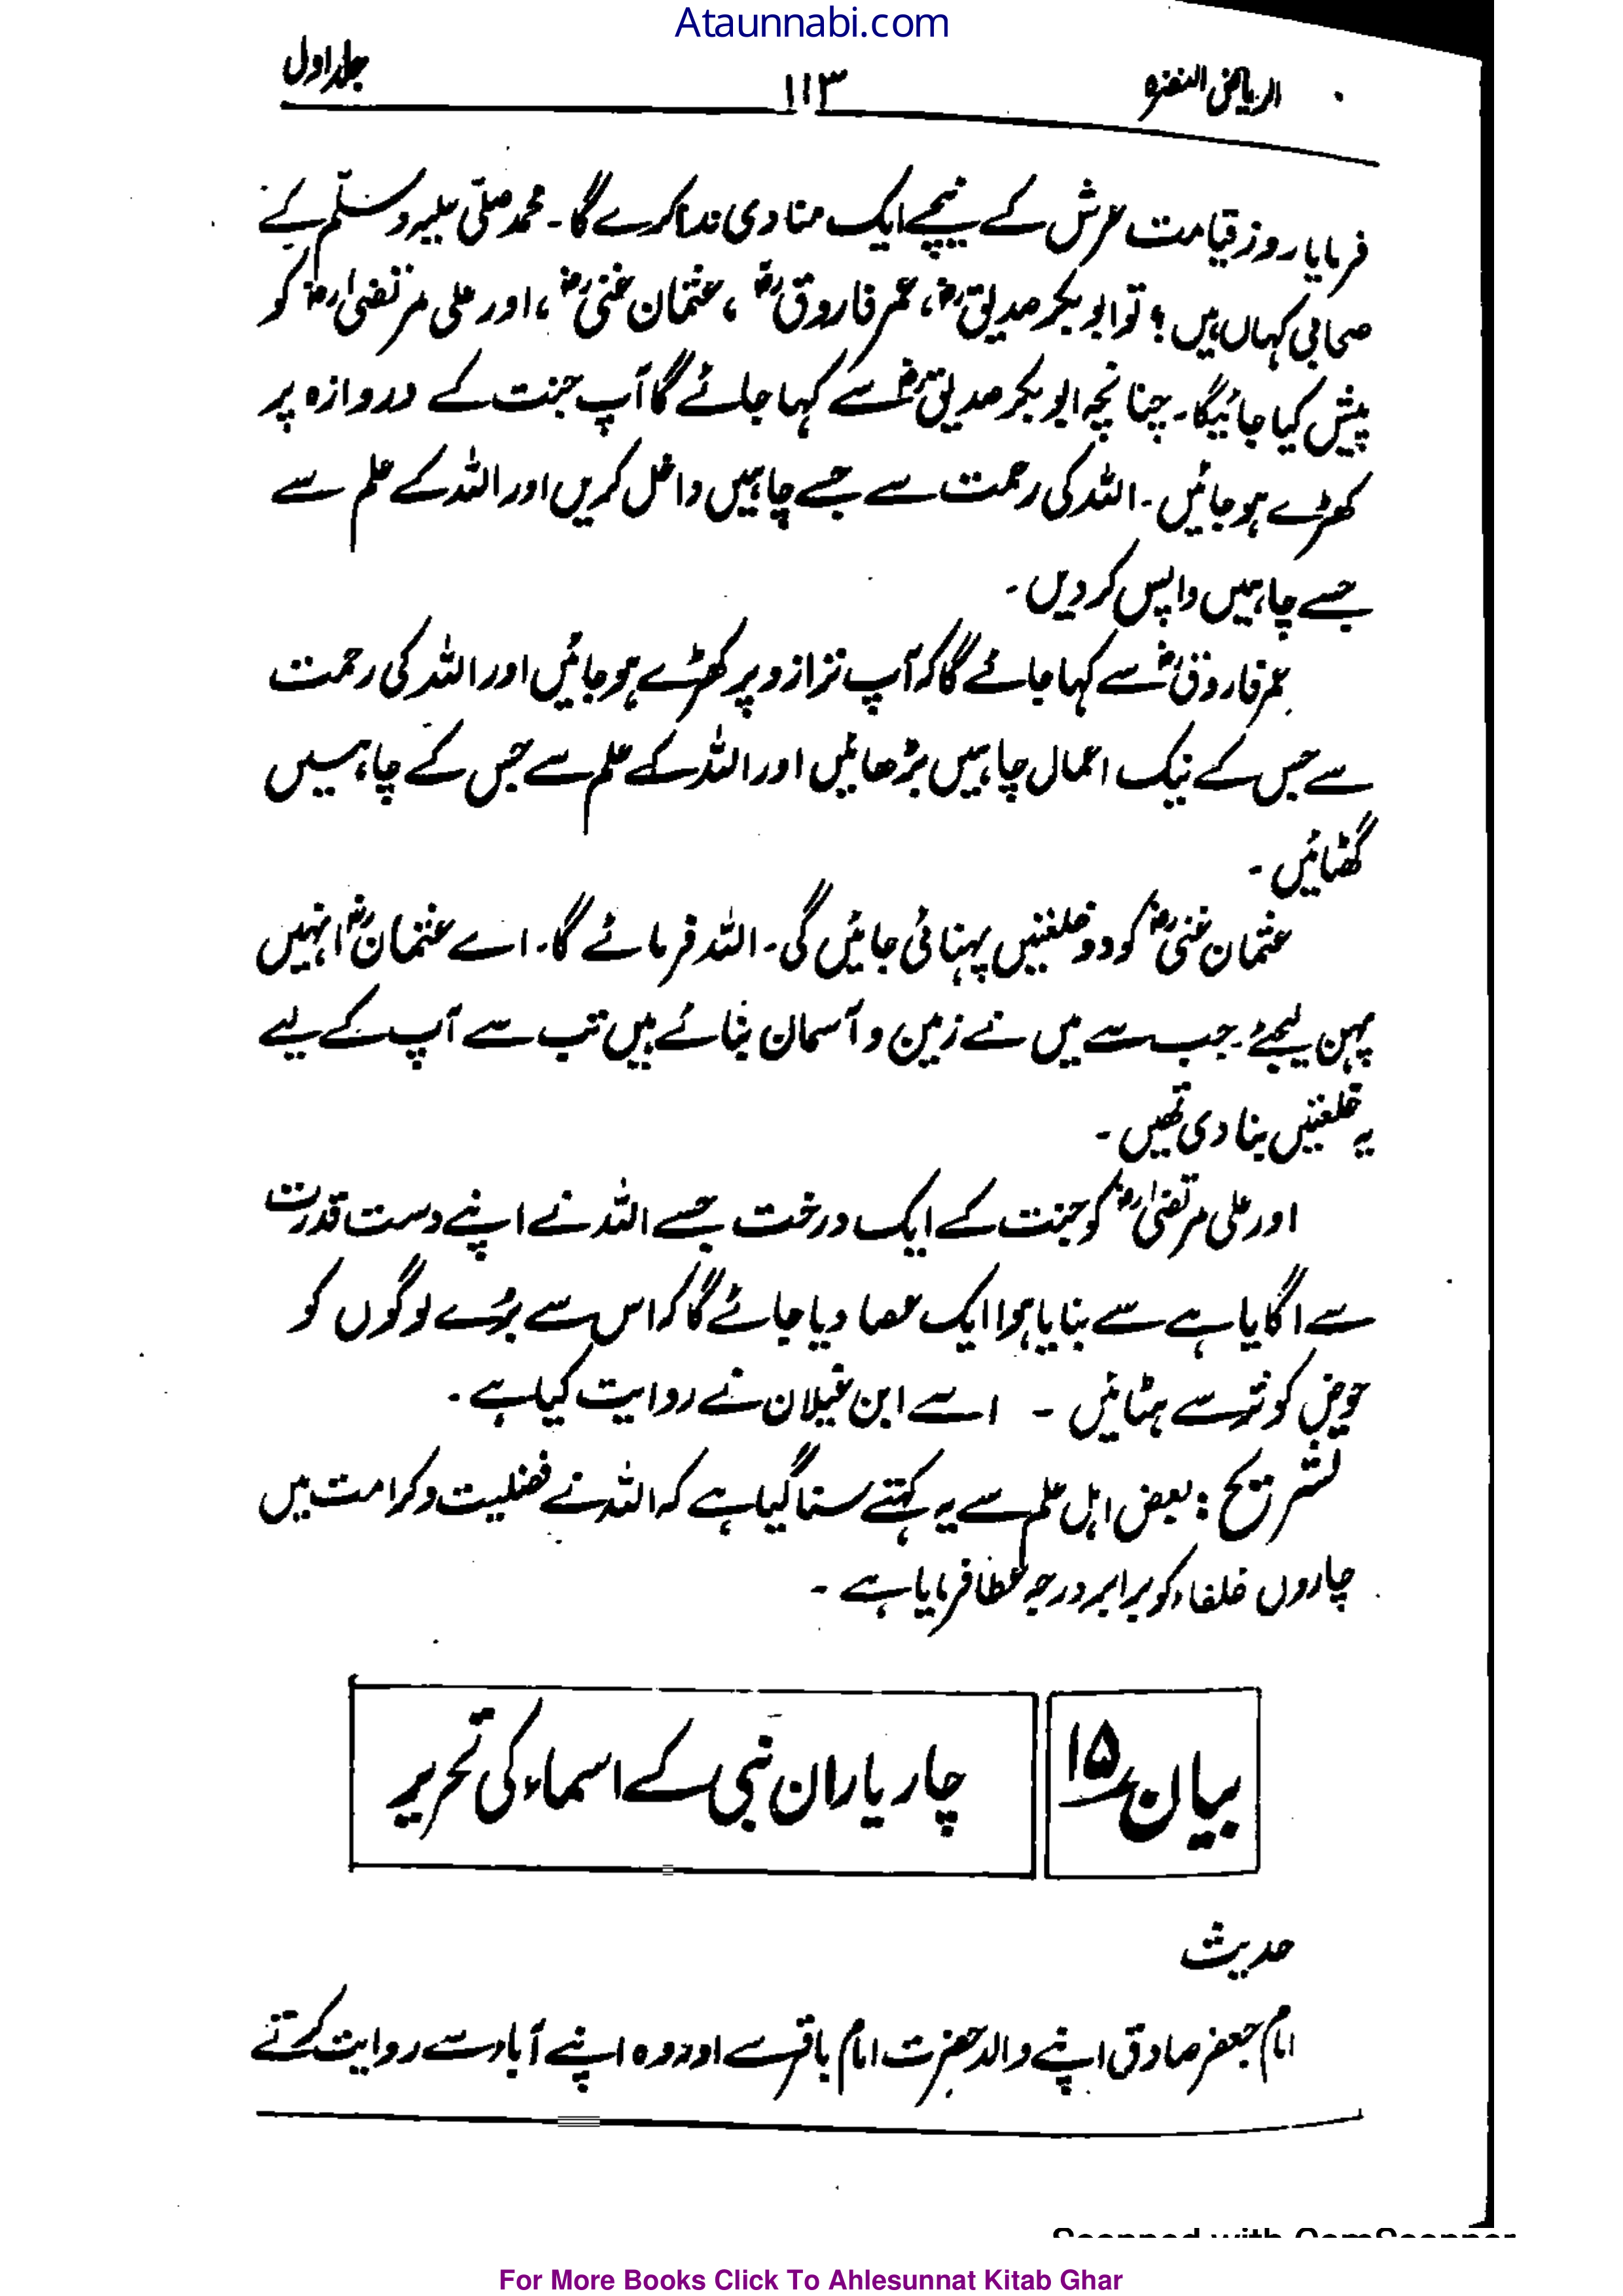 Ataunnabi.com
الریاض النضرہ ۱۱۳ جلد اول
فرمایا روز قیامت عرش کے نیچے ایک منادی ندا کرے گا۔ محمد صلی علیہ وسلم کے
صحابی کہاں ہیں؟ تو ابو بکر صدیقؓ، عمر فاروقؓ، عثمان غنیؓ، اور علی مرتضیٰؓ کو
پیش کیا جائیگا۔ چنانچہ ابو بکر صدیقؓ سے کہا جائے گا آپ جنت کے دروازہ پر
کھڑے ہو جائیں۔ اللہ کی رحمت سے جسے چاہیں داخل کریں اور اللہ کے علم سے
جسے چاہیں واپس کر دیں۔
عمر فاروقؓ سے کہا جائے گا کہ آپ ترازو پر کھڑے ہو جائیں اور اللہ کی رحمت
سے جس کے نیک اعمال چاہیں بڑھائیں اور اللہ کے علم سے جس کے چاہیں
گھٹائیں۔
عثمان غنیؓ کو دو خلعتیں پہنائی جائیں گی۔ اللہ فرمائے گا۔ اے عثمانؓ انہیں
پہن لیجئے۔ جب سے میں نے زمین و آسمان بنائے ہیں تب سے آپ کے لیے
یہ خلعتیں بنا دی تھیں۔
اور علی مرتضیٰؓ کو جنت کے ایک درخت جسے اللہ نے اپنے دست قدرت
سے اگایا ہے سے بنایا ہوا ایک عصا دیا جائے گا کہ اس سے بڑے لوگوں کو
حوض کوثر سے ہٹائیں ۔ اسے ابن غیلان نے روایت کیا ہے۔
تشریح: بعض اہل علم سے یہ کہتے سنا گیا ہے کہ اللہ نے فضلیت و کرامت میں
چاروں خلفاء کو برابر درجہ عطا فرمایا ہے۔
بیان ۱۵
چار یاران نبی کے اسماء کی تحریر
حدیث
امام جعفر صادق اپنے والد حضرت امام باقر سے اور وہ اپنے آباء سے روایت کرتے
Scanned with CamScanner
For More Books Click To Ahlesunnat Kitab Ghar